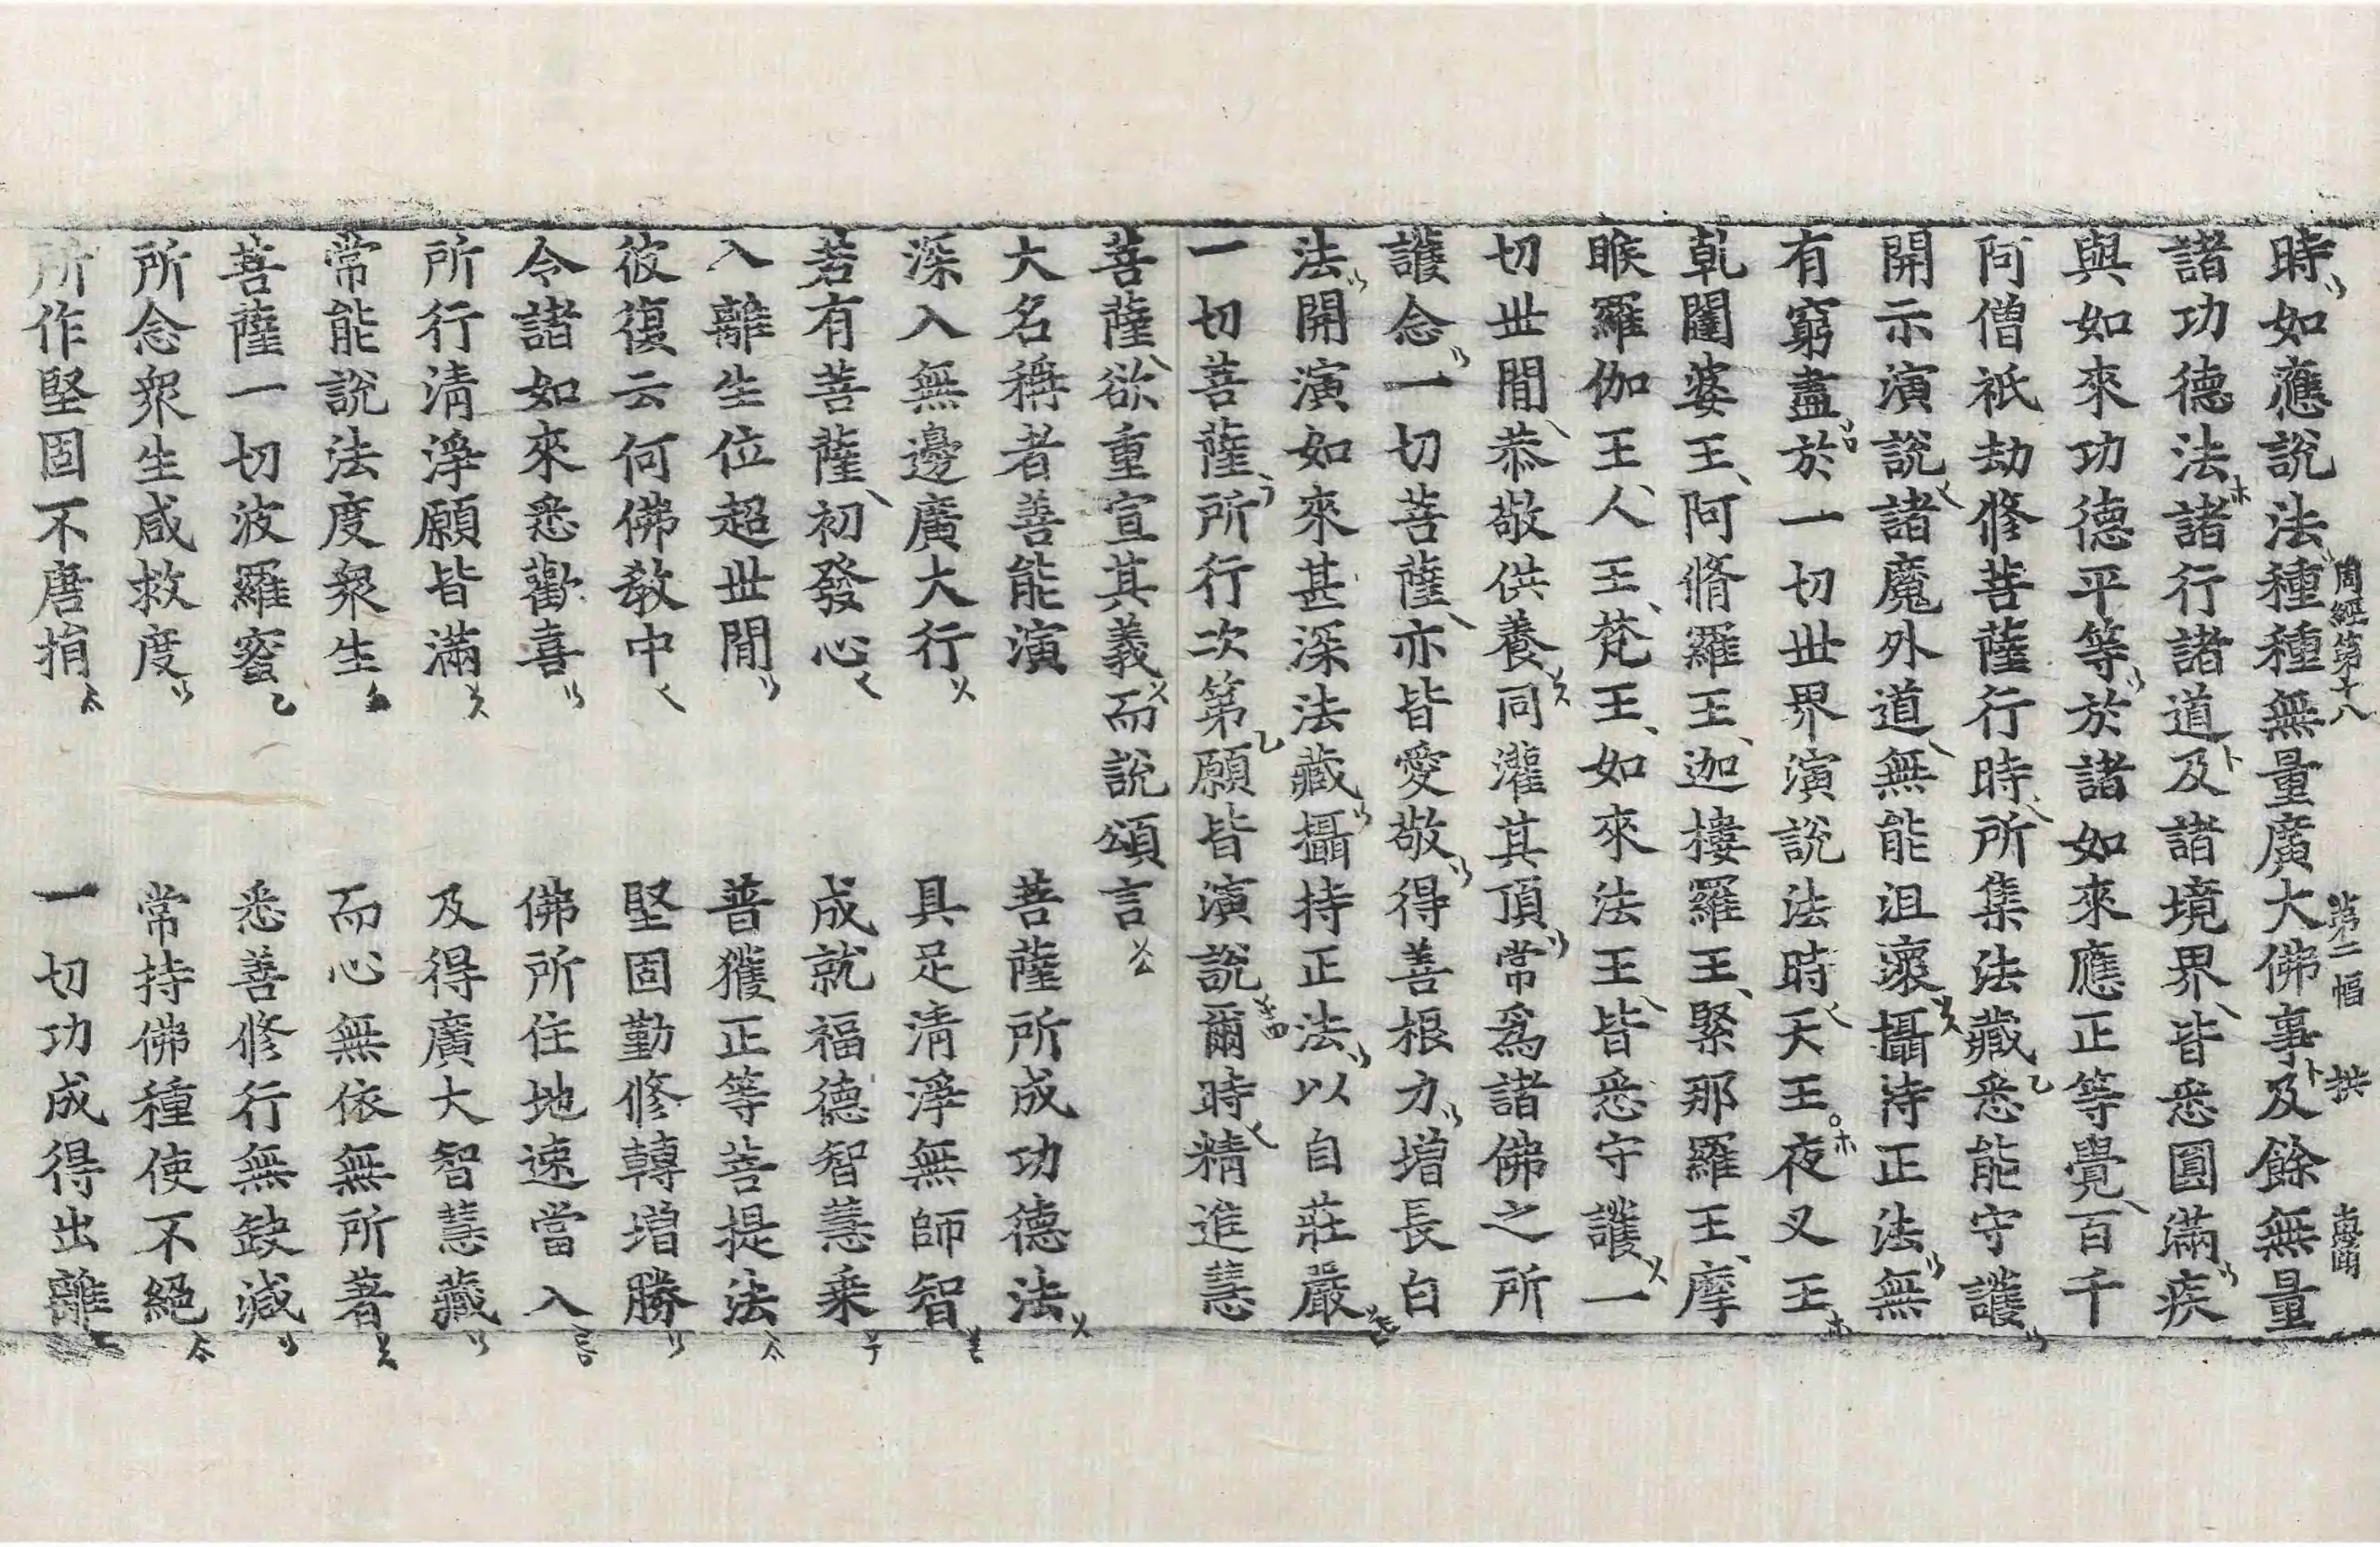 周經第十八 第二幅 拱
時如應說法種種無量廣大佛事及餘無量
諸功德法諸行諸道及諸境界皆悉圓滿疾
與如來功德平等於諸如來應正等覺百千
阿僧祇劫修菩薩行時所集法藏悉能守護
開示演說諸魔外道無能沮壞攝持正法無
有窮盡於一切世界演說法時天王夜叉王
乾闥婆王阿脩羅王迦樓羅王緊那羅王摩
睺羅伽王人王梵王如來法王皆悉守護一
切世間恭敬供養同灌其頂常爲諸佛之所
護念一切菩薩亦皆愛敬得善根力增長白
法開演如來甚深法藏攝持正法以自莊嚴
一切菩薩所行次第願皆演說爾時精進慧
菩薩欲重宣其義而說頌言
大名稱者善能演 菩薩所成功德法
深入無邊廣大行 具足清淨無師智
若有菩薩初發心 成就福德智慧乘
入離生位超世間 普獲正等菩提法
彼復云何佛教中 堅固勤修轉增勝
令諸如來悉歡喜 佛所住地速當入
所行清淨願皆滿 及得廣大智慧藏
常能說法度衆生 而心無依無所著
菩薩一切波羅蜜 悉善修行無缺減
所念衆生咸救度 常持佛種使不絕
所作堅固不唐捐 一切功成得出離